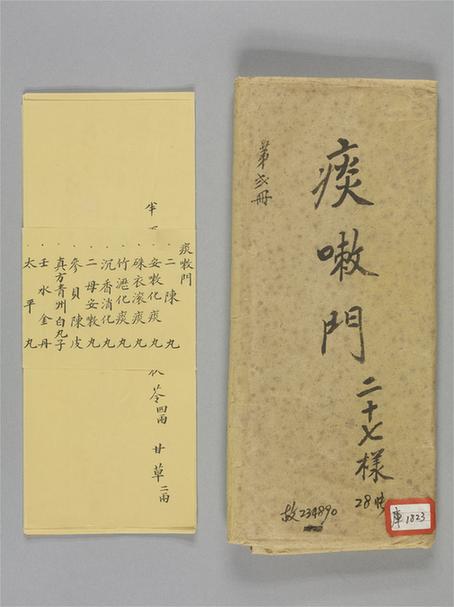 第弍冊
痰嗽門
二十七樣
28
故234890
庫1823
半
痰嗽門
二陳丸
安嗽化痰丸
硃衣滾痰丸
竹瀝化痰丸
沉香消化丸
二母安嗽丸
參貝陳皮
真方青州白丸子
壬水金丹
太平丸
苓四兩 甘草二兩